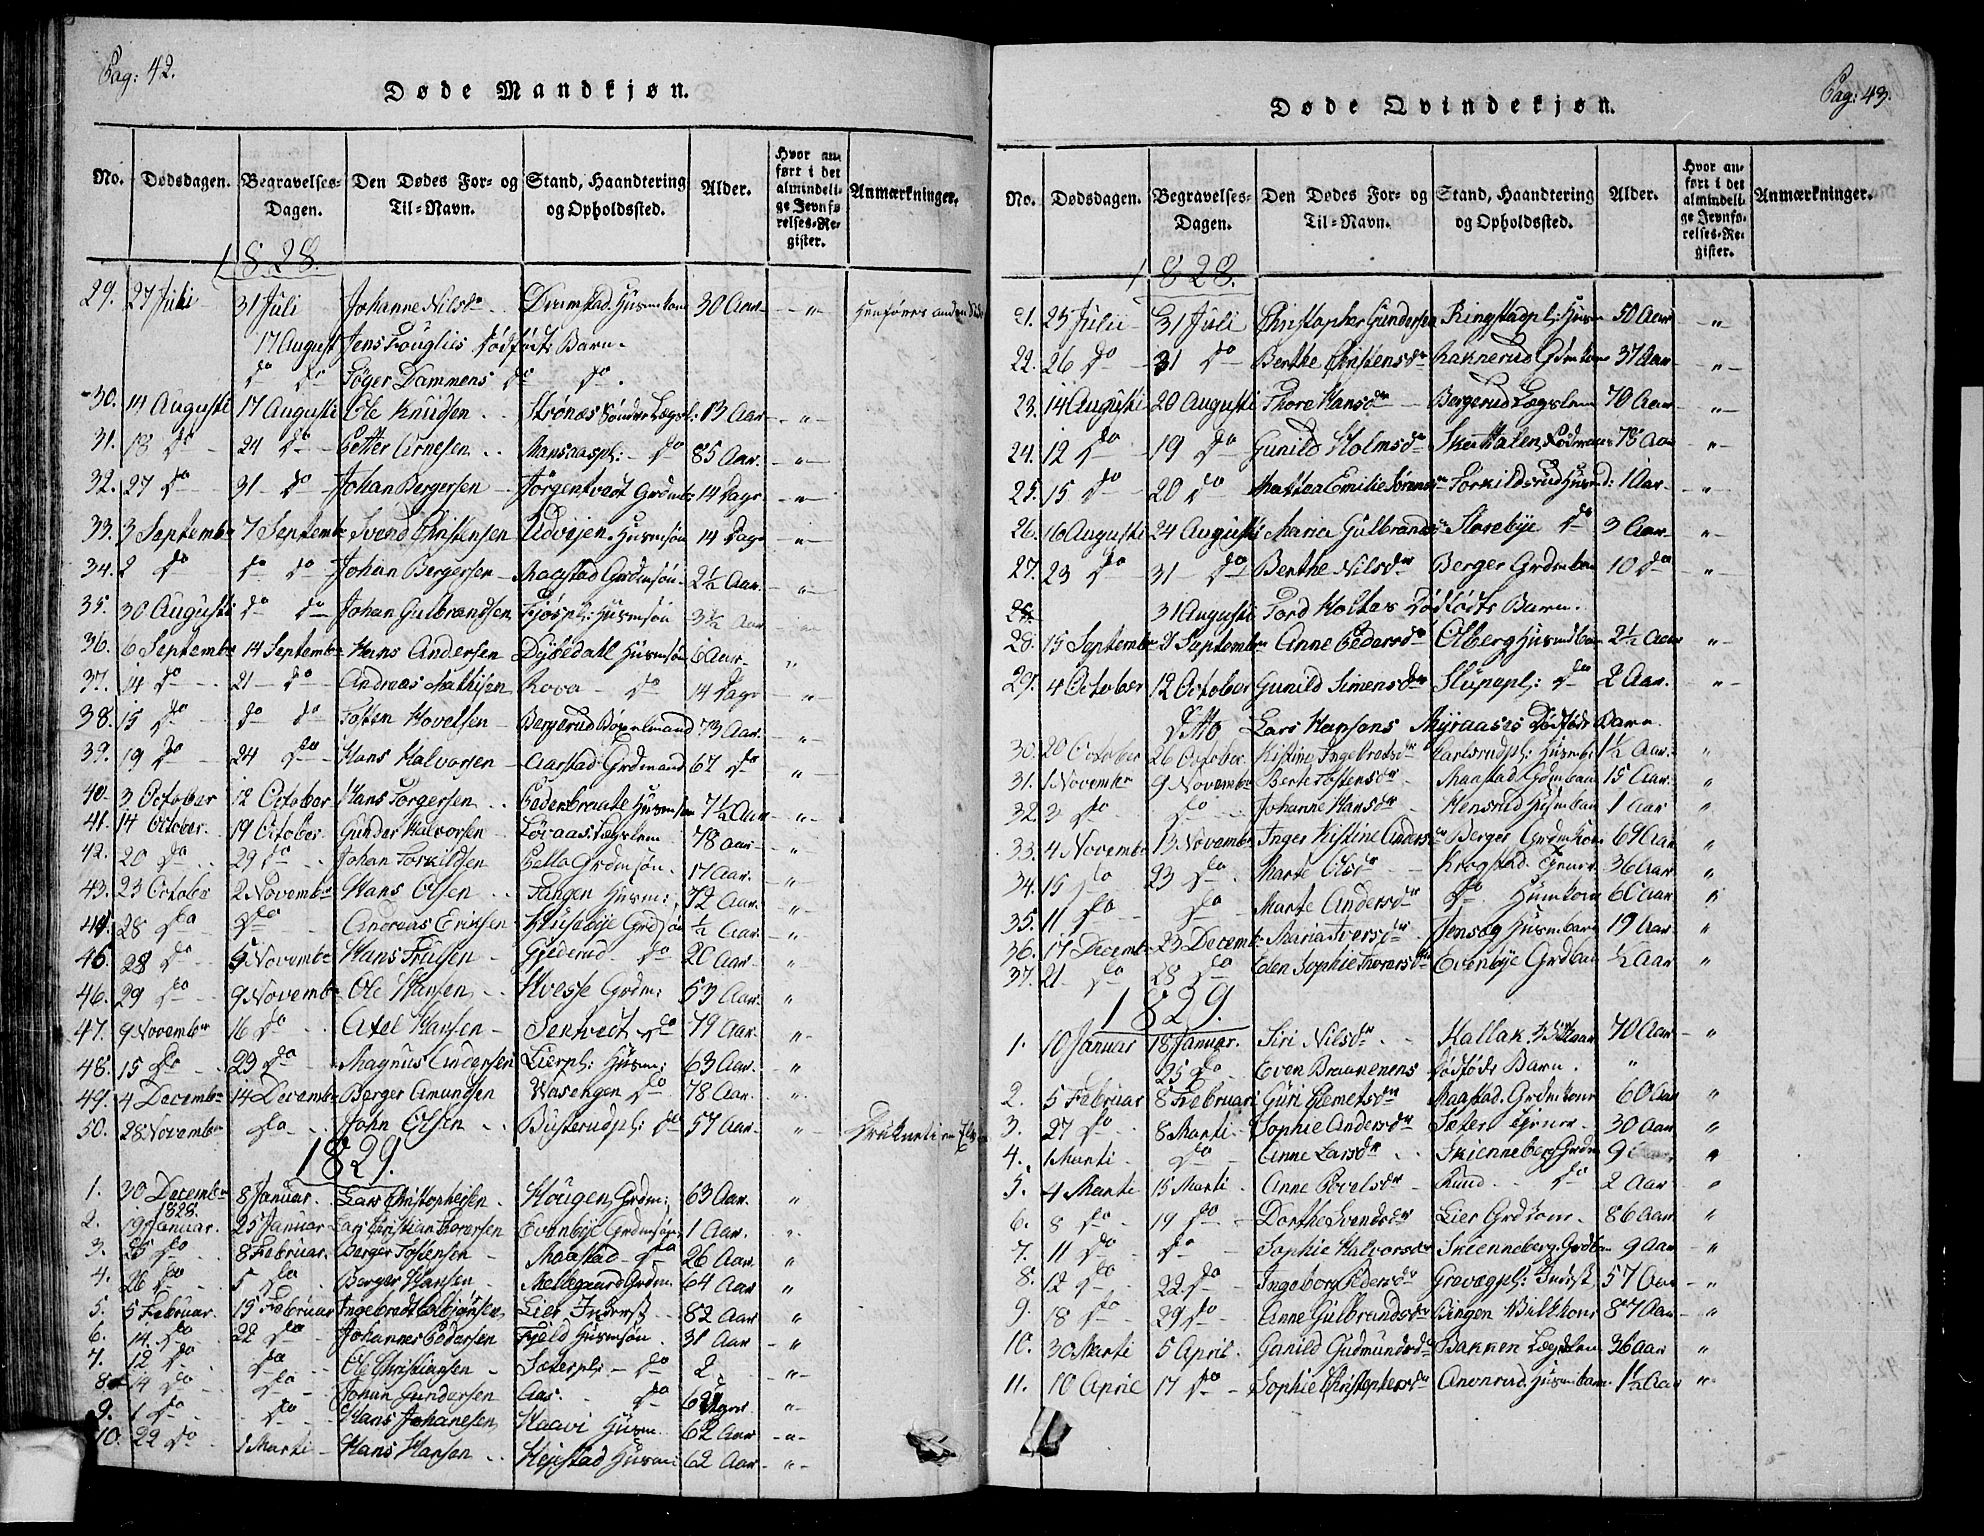 Pag: 42.
Døde Mandkjøn.
No. Dødsdagen. Begravelses-Dagen. Den Dødes For- og Til-Navn. Stand, Haandtering og Opholdssted. Alder. Hvor anført i det almindelige Jevnførelses-Register. Anmærkninger.
1828.
29. 27 Juli 31 Juli Johanne Nilsdr Husmbarn 30 Aar " Henføres
17 August Jens dødfødt Barn.
do do Dammens do do.
30. 14 Augusti 17 Augusti Ole Knudsen Strønæs Lægsl: 13 Aar "
31. 18 do 24 do Petter Arnesen do 85 Aar. "
32. 27 do 31 do Johan Bergersen Jørgentvedt Grdmb: 14 Dage "
33. 3 Septembr 7 Septembr Svend Christensen Husmsøn 14 Dage "
34. 2 do do do Johan Bergersen Maastad Grdmsøn 2½ Aar. "
35. 30 Augusti do do Johan Gulbrandsen Husmsøn 3½ Aar "
36. 6 Septembr 14 Septembr Hans Andersen Dysedahl Husmsøn 6 Aar "
37. 14 do 21 do Andreas Mathisen Kova do 14 Dage "
38. 15 do do do Totten Hovelsen Bergerud 73 Aar. "
39. 19 do 24 do Hans Halvorsen Aarstad Grdmand 67 do "
40. 3 October 12 October Hans Torgersen Pederbraate Husmsøn 7½ Aar "
41. 14 October. 19 October Gunder Halvorsen Løvaas Lægslem 78 Aar "
42. 20 do 29 do Johan Torkildsen Grdmsøn. 17 Aar. "
43. 23 October 2 Novembr Hans Olsen Tangen Husm: 72 Aar. "
44. 28 do do Andreas Eriksen Husebye Grdsøn ½ Aar. "
45. 28 do 5 Novembr Hans Truelsen Gjederud do 20 Aar. "
46. 29 do 9 Novembr Ole Hansen Hvesse Grdm: 53 Aar. "
47. 9 Novembr 16 do Axel Hansen Sentvedt do 79 Aar. "
48. 15 do 23 do Magnus Andersen Lierpl: Husm: 63 Aar. "
49. 4 Decembr 14 Decembr Berger Amundsen Vasengen do 78 Aar. "
50. 28 Novembr do John Olsen Busterudpl: do 57 Aar. "
1829.
1. 30 Decembr 1828. 8 Januar. Lars Christophersen Hougen Grdm: 63 Aar. "
2. 19 Januar. 25 Januar Lars Christian Torersen Evenbye Grdmsøn 1 Aar. "
3. 25 do 8 Februar. Berger Tostensen Maastad do 26 Aar "
4. 26 do 5 do Berger Hansen Mellegaard Grdm: 64 Aar "
5. 5 Februar. 15 Februar Ingebredt Colbjørnsen Lier Inderst 82 Aar "
6. 14. do 22 do Johannes Pedersen Fjeld Husmsøn. 31 Aar "
7. 12 do do Ole Christiansen Sæterpl: do 2 "
8. 14 do do Johan Gundersen Aas. do 6 "
9. 1 do do Hans Johanesen Haavi Husm 62 Aar "
10. 22 do 1 Marti Hans Hansen Husm: 62 Aar "
Pag: 43.
Døde Qvindekjøn.
No. Dødsdagen. Begravelses-Dagen. Den Dødes For- og Til-Navn. Stand, Haandtering og Opholdssted. Alder. Hvor anført i det almindelige Jevnførelses-Register. Anmærkninger.
1828.
21. 23 Julii 31 Juli Christopher Gundersen Ringstadpl: Husm 50 Aar "
22. 26 do 31 do Berthe Christensdr Raknerud Grdmkone 37 Aar "
23. 14 Augusti 20 Augusti Thore Hansdr Bergerud Lægslem 70 Aar "
24. 12 do 19 do Gunild Holmsdr 78 Aar "
25. 15 do 20 do Mattea Emilie Torkildsrud Husmb: 1 Aar "
26. 16 Augusti 24 Augusti Maria Gulbrandsdr Storebye do 3 Aar "
27. 23 do 31 do Berthe Nilsdr Berger Grdmbarn 10 do "
31 Augusti Tord Holters Dødfødt Barn.
28. 15 Septembr 21 Septembr Anne Pedersdr Ølberg Husmbarn 2½ Aar "
29. 4 October 12 October Gunild Simensdr Slupepl: do 2 Aar. "
Ditto Lars Hansens Myraasis Dødfødt Barn.
30. 20 October 26 October Kistine Ingebretsdr Carlsrudpl: Husmb: 1½ Aar. "
31. 1 Novembr 9 Novembr Berte Tostensdr Maastad Grdmbarn 15 Aar. "
32. 3 do do Johanne Hansdr Hensrud Husmbarn 1 Aar "
33. 4 Novembr 13 Novembr Inger Kistine Andersdr Berger Grdmkone 69 Aar "
34. 15 do 23 do Marte Olsdr Krogstad 36 Aar "
35. 11 do do Marte Andersdr do Husmkone 60 Aar "
36. 17 Decembr 23 Decembr Maria Iversdr Husmbarn 19 Aar "
37. 21 do 28 do Eden Sophie Thoresdr Evenbye Grdbarn ½ Aar "
1829.
1. 10 Januar 18 Januar. Siri Nilsdr Hallak 70 Aar "
25 do Even Braatenens dødfødt Barn. "
2. 5 Februar 8 Februar Guri Clemetsdr Maastad. Grdmkone 60 Aar "
3. 27 do 8 Marti Sophie Andersdr Sæter 30 Aar "
4. 1 Marti do Anne Larsdr Skienneberg Grdm 9 "
5. 4 Marti 15 Marti Anne Povelsdr Rud do 2 Aar "
6. 8 do 19 do Dorthe Svendsdr Lier 86 Aar "
7. 11 do do Sophie Halvorsdr Skienneberg Grdbarn 9 Aar "
8. 12 do 22 do Ingeborg Pedersdr Grevægpl: Inderst 57 Aar "
9. 18 do 29 do Anne Gulbrandsdr Bingen 87 Aar "
10. 30 Marti 5 April. Gunild Gudmundsdr Bakken Lægslem 36 Aar "
11. 10 April 17 do Sophie Christophersdr Husmbarn 1½ Aar "